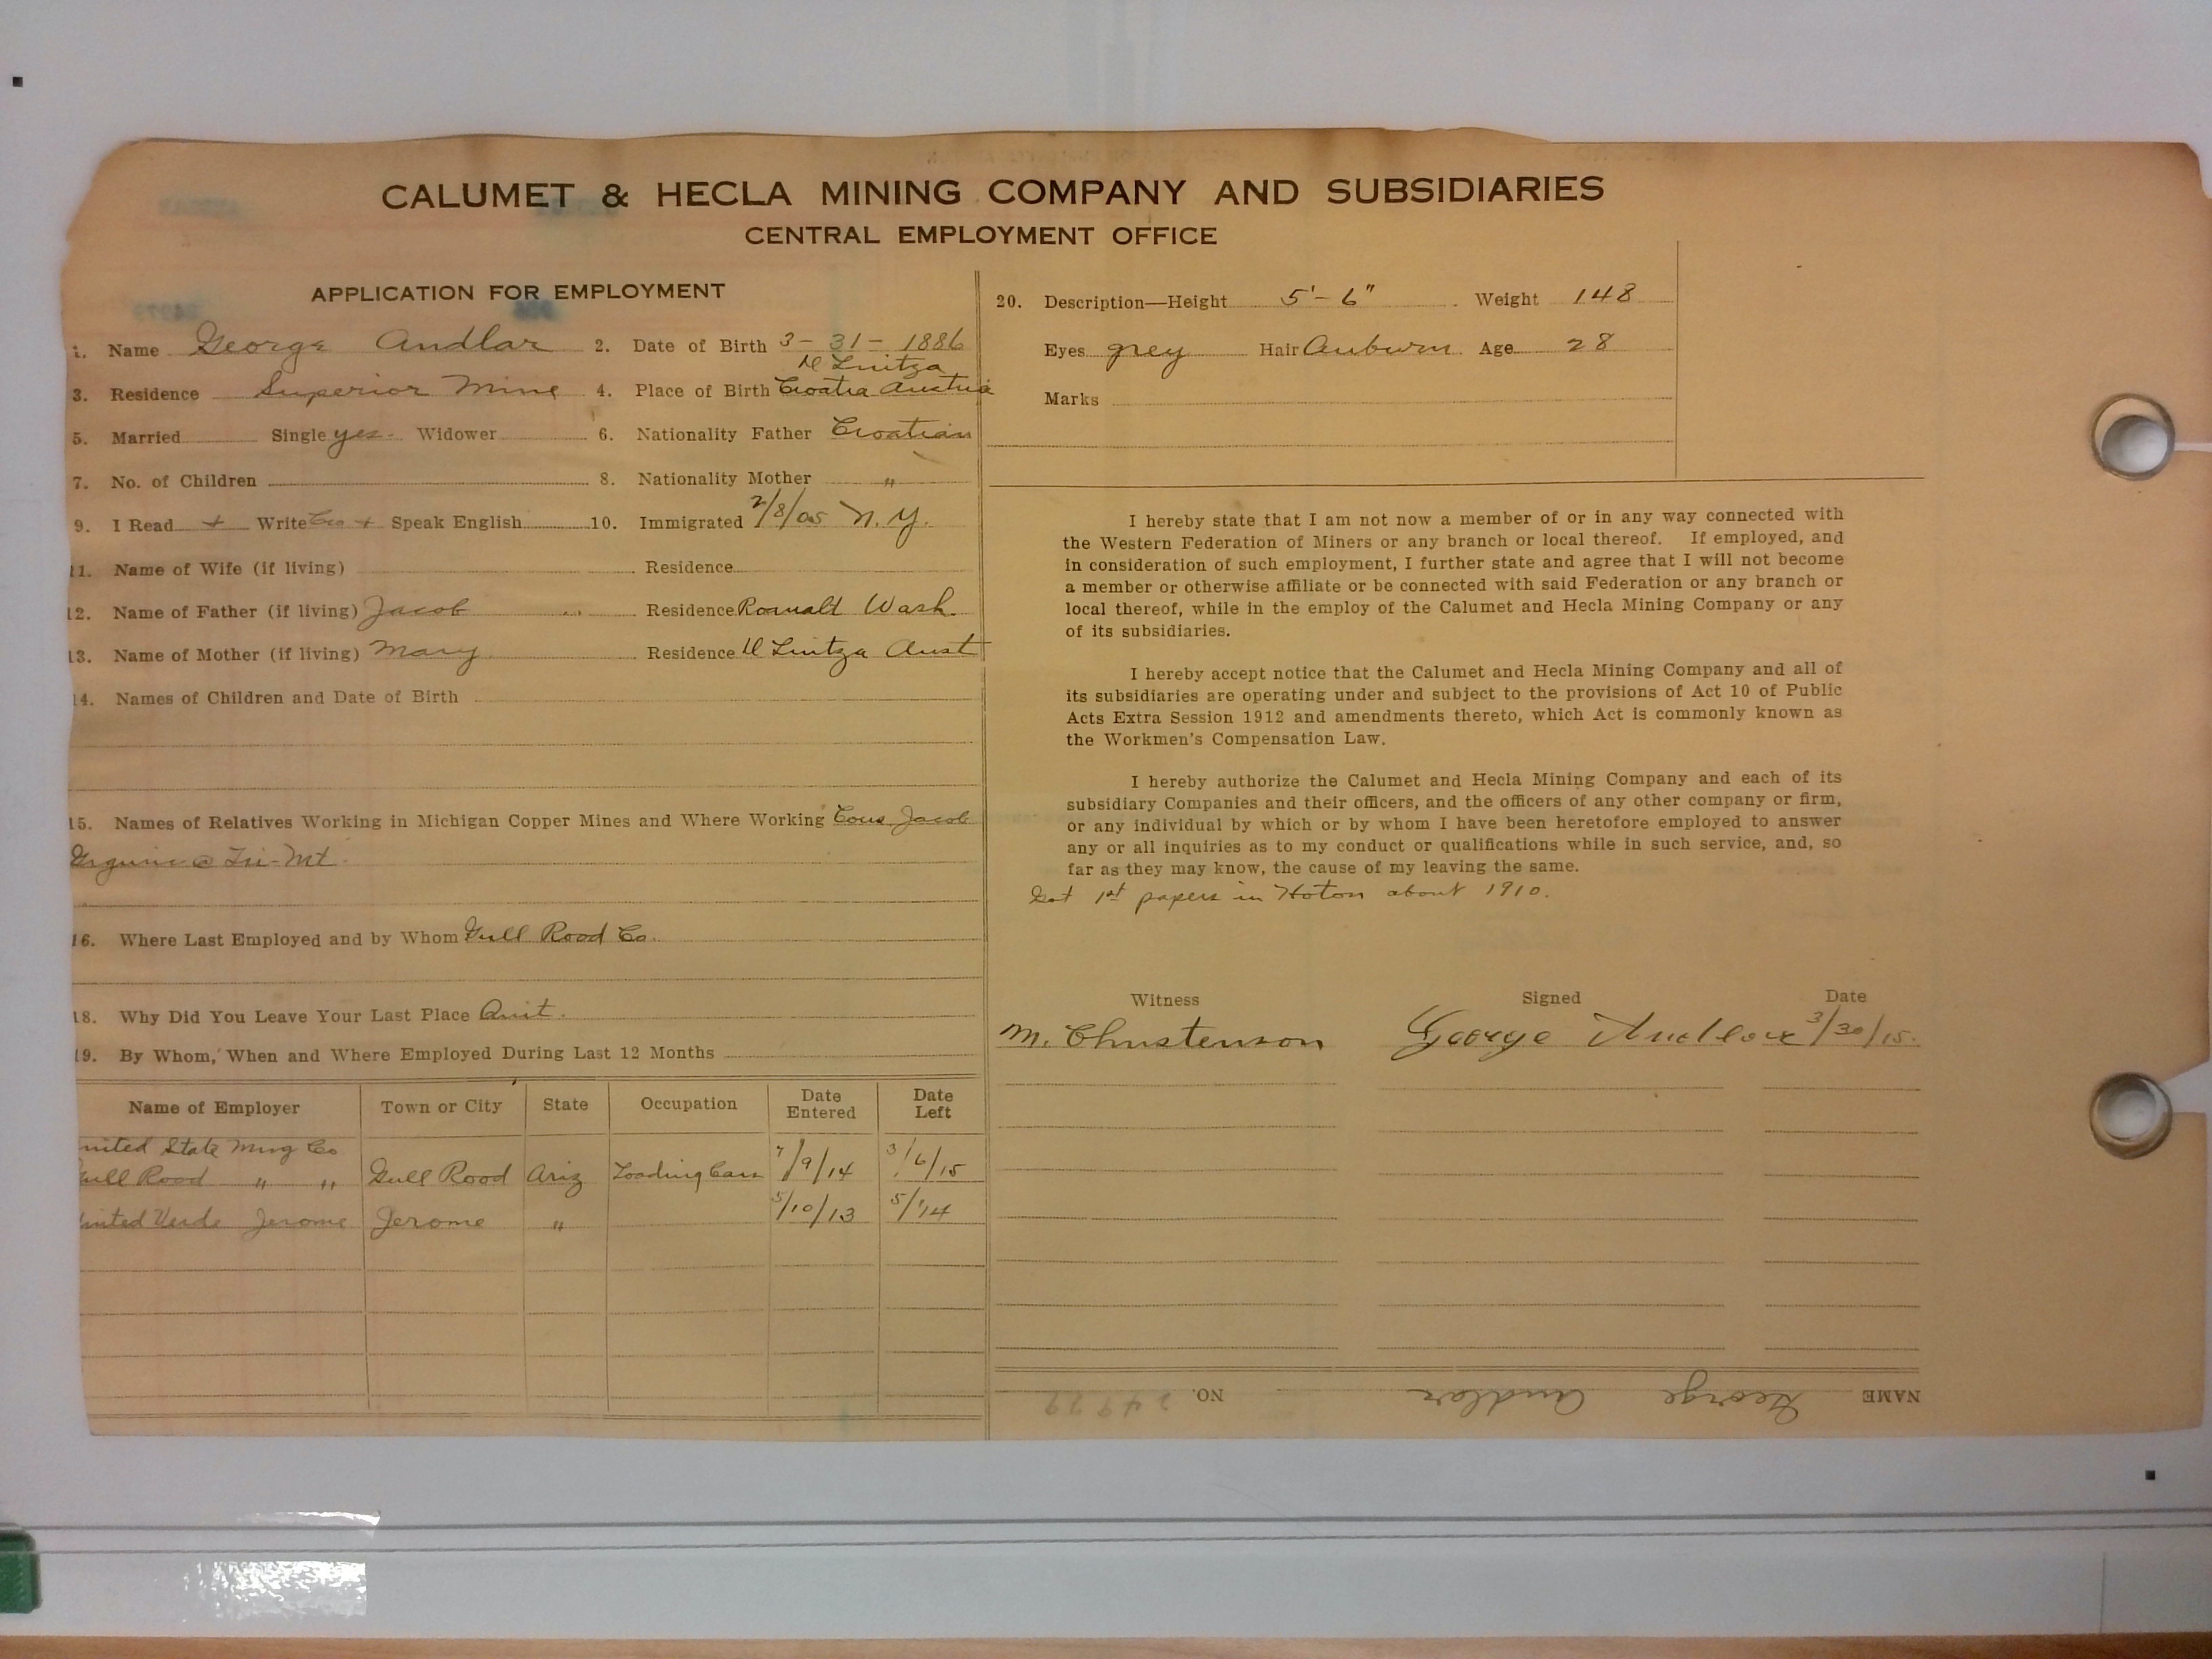 CALUMET & HECLA MINING COMPANY AND SUBSIDIARIES
CENTRAL EMPLOYMENT OFFICE
APPLICATION FOR EMPLOYMENT
1. Name George Andlar 2. Date of Birth 3-31-1886
3. Residence Superior Mine 4. Place of Birth Croatia Austria
5. Married Single yes Widower 6. Nationality Father Croatian
7. No. of Children 8. Nationality Mother "
9. I Read + Write Cro + Speak English 10. Immigrated 2/8/05 N.Y.
11. Name of Wife (if living) Residence
12. Name of Father (if living) Jacob Residence Wash.
13. Name of Mother (if living) Mary Residence Aust
14. Names of Children and Date of Birth
15. Names of Relatives Working in Michigan Copper Mines and Where Working Cous Jacob
@ Tri-Mt.
16. Where Last Employed and by Whom Gull Rood Co.
18. Why Did You Leave Your Last Place Quit.
19. By Whom, When and Where Employed During Last 12 Months
Name of Employer Town or City State Occupation Date Entered Date Left
nited State Mng Co
ull Rood " " Gull Rood Ariz Loading Cars 7/9/14 3/6/15
nited Verde Jerome Jerome " 5/10/13 5/14
20. Description—Height 5'-6" Weight 148
Eyes grey Hair Auburn Age 28
Marks
I hereby state that I am not now a member of or in any way connected with
the Western Federation of Miners or any branch or local thereof. If employed, and
in consideration of such employment, I further state and agree that I will not become
a member or otherwise affiliate or be connected with said Federation or any branch or
local thereof, while in the employ of the Calumet and Hecla Mining Company or any
of its subsidiaries.
I hereby accept notice that the Calumet and Hecla Mining Company and all of
its subsidiaries are operating under and subject to the provisions of Act 10 of Public
Acts Extra Session 1912 and amendments thereto, which Act is commonly known as
the Workmen's Compensation Law.
I hereby authorize the Calumet and Hecla Mining Company and each of its
subsidiary Companies and their officers, and the officers of any other company or firm,
or any individual by which or by whom I have been heretofore employed to answer
any or all inquiries as to my conduct or qualifications while in such service, and, so
far as they may know, the cause of my leaving the same.
Got 1st papers in Hoton about 1910.
Witness Signed Date
M. Christenson George Andlar 3/30/15.
NAME George Andlar NO.